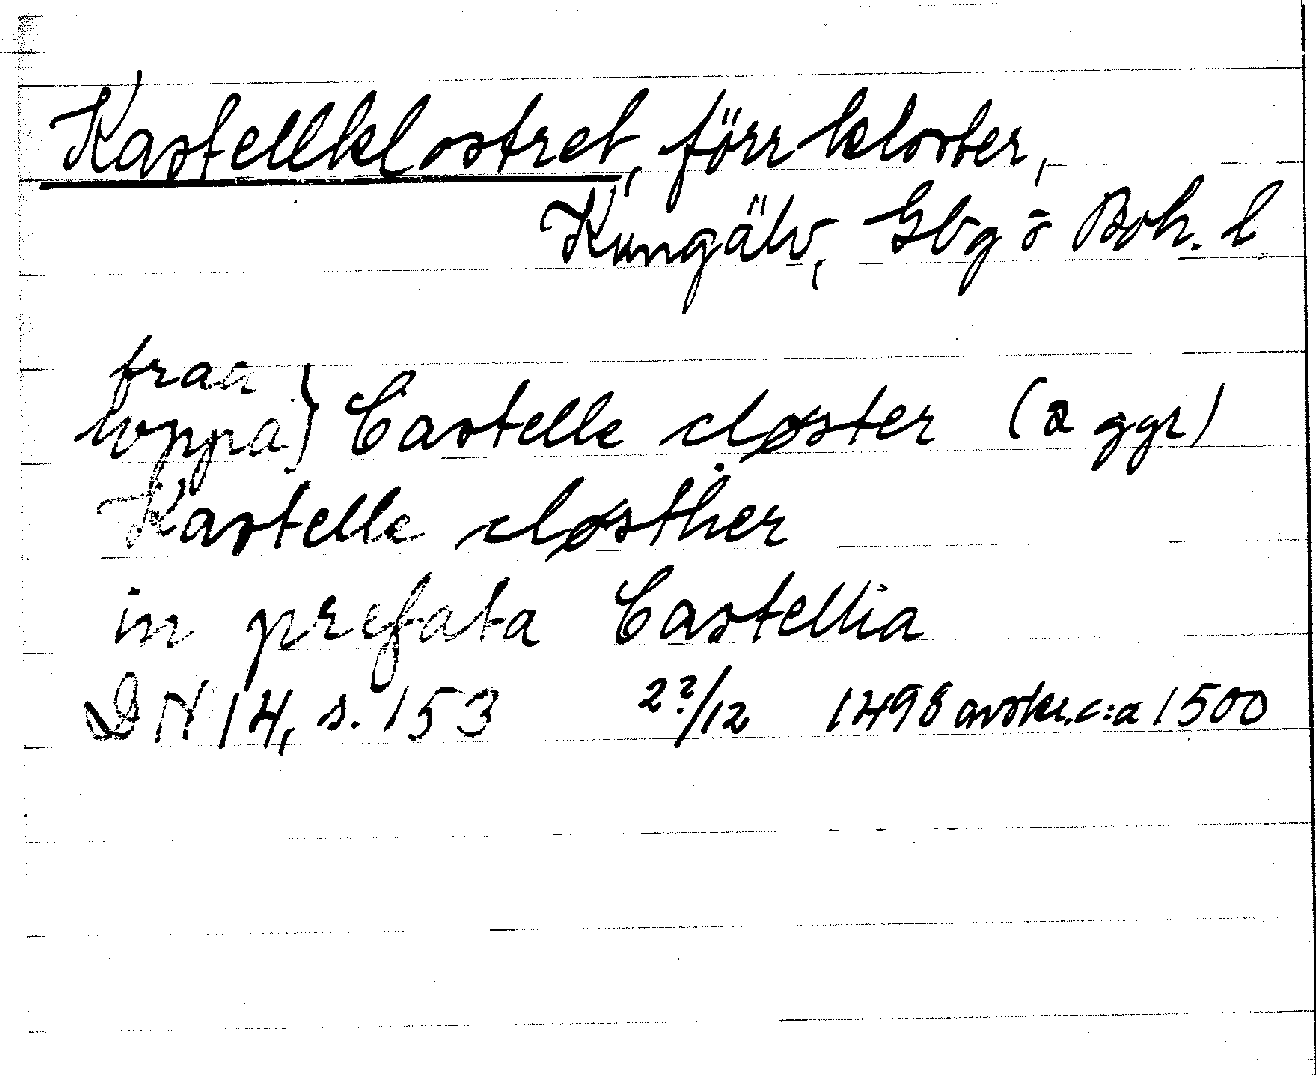 Kastellklostret, förr kloster,
Kungälv, Gbg o Boh. l
fraa
vppa } Castelle closter (2 ggr)
Kastelle cløsther
in prefata Castellia
DN 14, s. 153 22/12 1498 avskr. c:a 1500